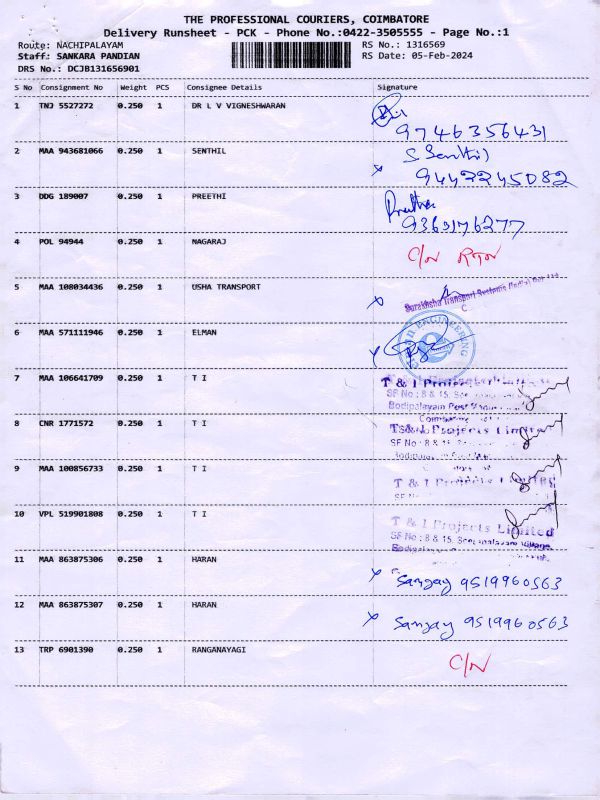 THE PROFESSIONAL COURIERS, COIMBATORE
Delivery Runsheet - PCK - Phone No.:0422-3505555 - Page No.:1
Route: NACHIPALAYAM RS No.: 1316569
Staff: SANKARA PANDIAN RS Date: 05-Feb-2024
DRS No.: DCJB131656901
S No Consignment No Weight PCS Consignee Details Signature
1 TNJ 5527272 0.250 1 DR L V VIGNESHWARAN
9746356431
2 MAA 943681066 0.250 1 SENTHIL S Senthil
x 9442245082
3 DDG 189007 0.250 1 PREETHI Preetha
9363176277
4 POL 94944 0.250 1 NAGARAJ C/N RTN
5 MAA 108034436 0.250 1 USHA TRANSPORT
x Suraksha Transport Systems (India) Pvt Ltd
6 MAA 571111946 0.250 1 ELMAN
x ENGINEERING
7 MAA 106641709 0.250 1 T I T & I Projects Limited
SF No : 8 & 15,
Bodipalayam Post
8 CNR 1771572 0.250 1 T I T & I Projects Limited
SF No : 8 & 15,
9 MAA 100856733 0.250 1 T I
T & I Projects Limited
SF No
10 VPL 519901808 0.250 1 T I T & I Projects Limited
SF No : 8 & 15, Seerapalayam Village,
Bodipalayam
11 MAA 863875306 0.250 1 HARAN
x Sanjay 9519960563
12 MAA 863875307 0.250 1 HARAN
x Sanjay 9519960563
13 TRP 6901390 0.250 1 RANGANAYAGI C/N